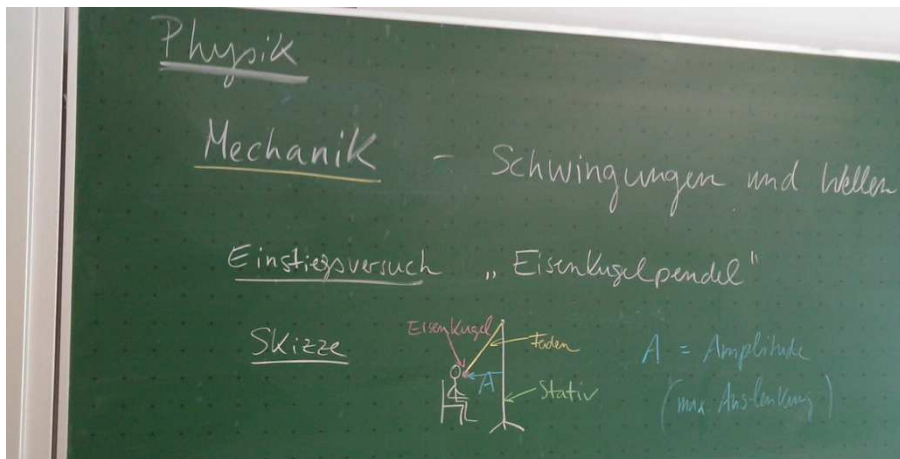 Physik
Mechanik - Schwingungen und Wellen
Einstiegsversuch „Eisenkugelpendel"
Skizze
Eisenkugel
Faden
A
Stativ
A = Amplitude
(max. Auslenkung)